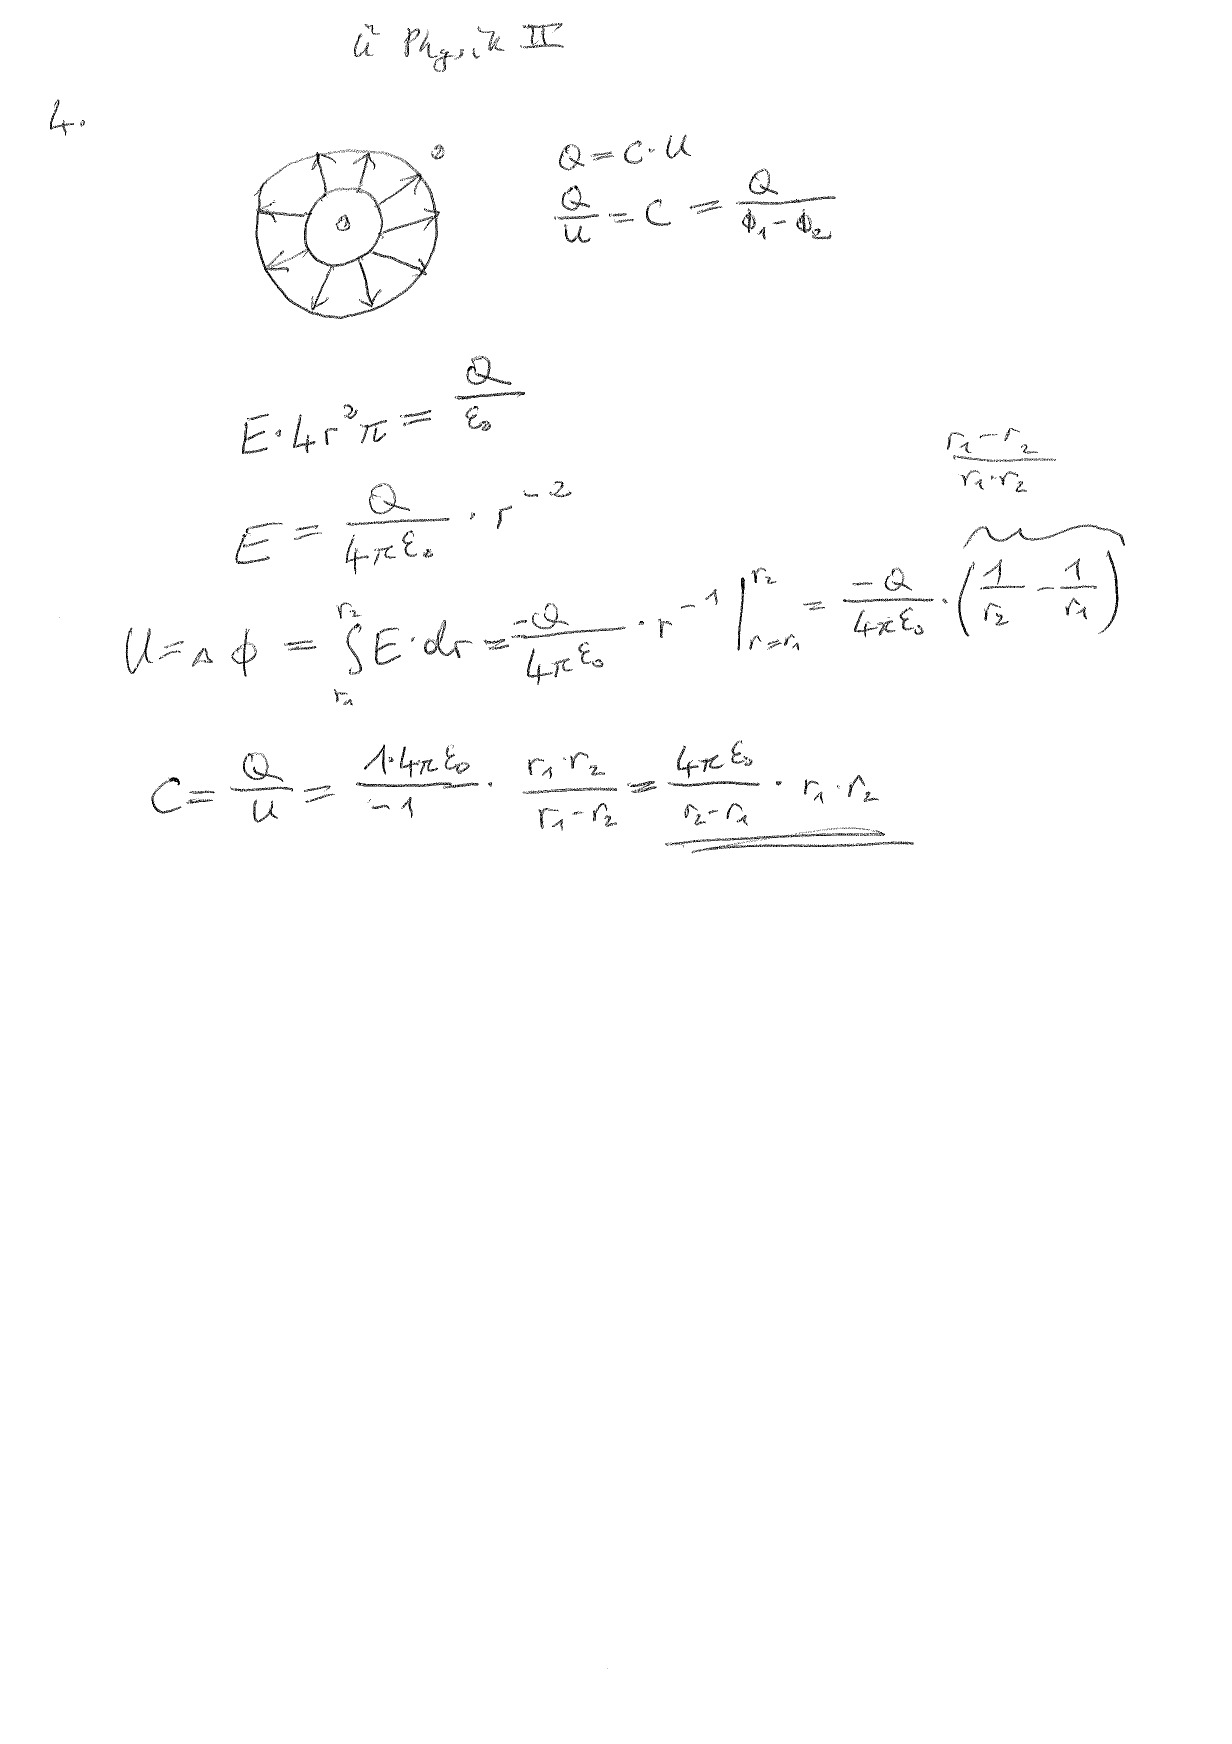 Ü Physik II
4.
Q = C · U
Q/U = C = Q/(ϕ₁ - ϕ₂)
E · 4r²π = Q/ε₀
E = Q/(4πε₀) · r⁻²
(r₁ - r₂)/(r₁ · r₂)
U = Δϕ = ∫_{r₁}^{r₂} E · dr = -Q/(4πε₀) · r⁻¹ |_{r=r₁}^{r₂} = -Q/(4πε₀) · (1/r₂ - 1/r₁)
C = Q/U = (1 · 4πε₀)/(-1) · (r₁ · r₂)/(r₁ - r₂) = 4πε₀/(r₂ - r₁) · r₁ · r₂